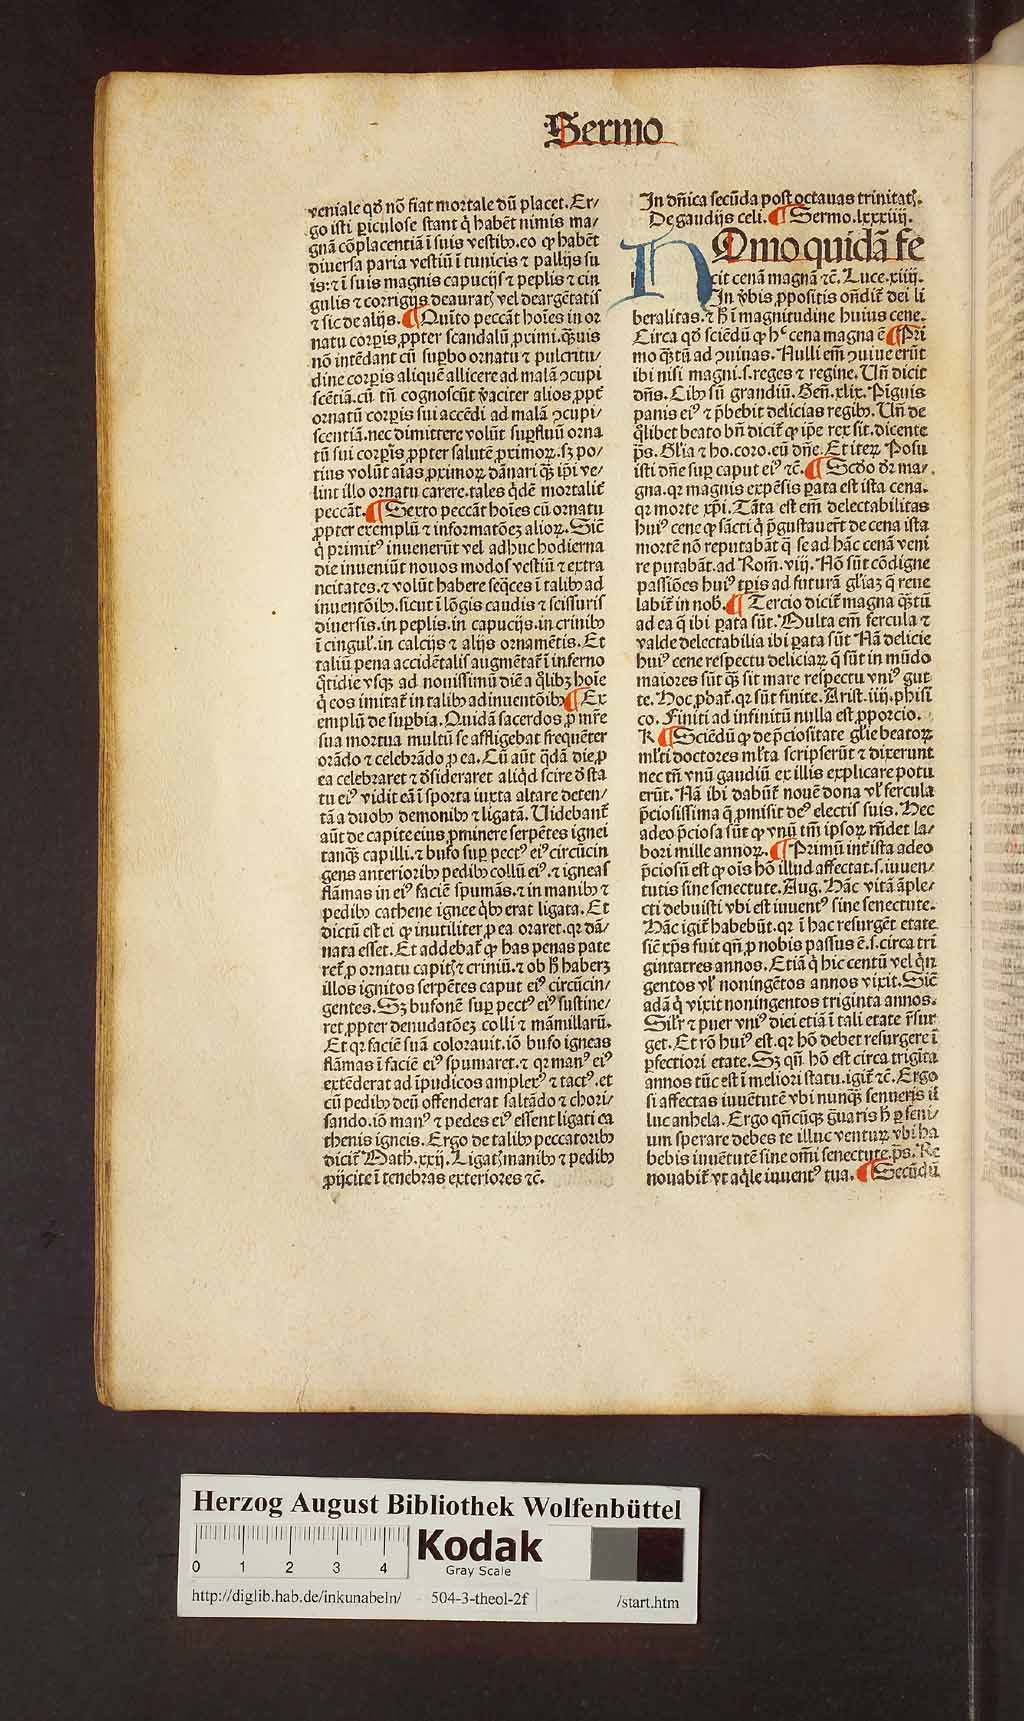 Sermo
veniale qđ nō fiat mortale dū placet. Er⸗
go isti ꝑiculose stant q̇ habēt nimis ma⸗
gnā cōplacentiā ī suis vestibꝰ. eo ꝙ habēt
diuersa paria vestiū ī tunicis ⁊ pallijs su
is: ⁊ ī suis magnis capucijs ⁊ peplis ⁊ cin
gulis ⁊ corrigijs deauratꝭ vel deargētatis
⁊ sic de alijs. ¶ Quīto peccāt hoīes in or
natu corꝑis ꝓpter scandalū ꝓximi. q̄ꝫuis
nō intēdant cū suꝑbo ornatu ⁊ pulcritu⸗
dine corꝑis aliquē allicere ad malā ꝯcupi
scētiā. cū tn̄ cognoscūt v̓aciter alios ꝓpt̓
ornatū corꝑis sui accēdi ad malā ꝯcupi⸗
scentiā. nec dimittere volūt suꝑfluū orna
tū sui corꝑis ꝓpter salutē ꝓximoꝝ. sꝫ po⸗
tius volūt aīas ꝓximoꝝ dānari q̄ꝫ ip̄i ve⸗
lint illo ornatu carere. tales q̇dē mortalit̓
peccāt. ¶ Sexto peccāt hoīes cū ornatu
ꝓpter exemplū ⁊ informatōeꝫ alioꝝ. Sic̄
q̇ primitꝰ inuenerūt vel adhuc hodierna
die inueniūt nouos modos vestiū ⁊ extra
neitates. ⁊ volūt habere seq̄ces ī talibꝰ ad
inuentōibꝰ. sicut ī lōgis caudis ⁊ scissuris
diuersis. in peplis. in capucijs. in crinibꝰ
ī cingul̓. in calcijs ⁊ alijs ornamētis. Et
taliū pena accidētalis augmētat̓ ī inferno
q̇tidie vsqꝫ ad nouissimū diē a q̇libꝫ hoīe
q̇ eos imitat̓ in talibꝰ adinuentōibꝰ ¶ Ex
emplū de suꝑbia. Quidā sacerdos ꝓ mr̄e
sua mortua multū se affligebat frequēter
orādo ⁊ celebrādo ꝓ ea. Cū aūt q̄dā die ꝓ
ea celebraret ⁊ d̓sideraret aliq̇d scire d̓ sta
tu eiꝰ vidit eā ī sporta iuxta altare deten⸗
tā a duobꝰ demonibꝰ ⁊ ligatā. Uidebant̓
aūt de capite eius ꝓminere serpētes ignei
tanq̄ꝫ capilli. ⁊ bufo suꝑ pectꝰ eiꝰ circūcin
gens anterioribꝰ pedibꝰ collū eiꝰ. ⁊ igneas
flāmas in eiꝰ faciē spumās. ⁊ in manibꝰ ⁊
pedibꝰ cathene ignee q̇bꝰ erat ligata. Et
dictū est ei ꝙ inutiliter ꝓ ea oraret. qꝛ dā⸗
nata esset. Et addebat̓ ꝙ has penas pate
ret̓ ꝓ ornatu capitꝭ ⁊ criniū. ⁊ ob h̓ haberꝫ
illos ignitos serpētes caput eiꝰ circūcin⸗
gentes. Sꝫ bufonē suꝑ pectꝰ eiꝰ sustine⸗
ret ꝓpter denudatōeꝫ colli ⁊ māmillarū.
Et qꝛ faciē suā colorauit. iō bufo igneas
flāmas ī faciē eiꝰ spumaret. ⁊ qꝛ manꝰ eiꝰ
extēderat ad īpudicos amplexꝰ ⁊ tactꝰ. et
cū pedibꝰ deū offenderat saltādo ⁊ chori⸗
sando. iō manꝰ ⁊ pedes eiꝰ essent ligati ca
thenis igneis. Ergo de talibꝰ peccatoribꝰ
dicit̓ Math̓. xxij. Ligatꝭ manibꝰ ⁊ pedibꝰ
ꝓijcite ī tenebras exteriores ⁊c̄.
In dn̄ica secūda post octauas trinitatꝭ.
De gaudijs celi. ¶ Sermo. lxxxiiij.
HOmo quidā fe
cit cenā magnā ⁊c̄. Luce. xiiij.
In v̓bis ꝓpositis on̄dit̓ dei li
beralitas. ⁊ h̓ ī magnitudine huius cene.
Circa qđ sciēdū ꝙ hͨ cena magna ē ¶ Pri
mo q̄ꝫtū ad ꝯuiuas. Nulli em̄ ꝯuiue erūt
ibi nisi magni. s. reges ⁊ regine. Un̄ dicit
dn̄s. Cibꝰ sū grandiū. Gen̄. xlix. Pīguis
panis eiꝰ ⁊ p̄bebit delicias regibꝰ. Un̄ de
q̇libet beato bn̄ dicit̓ ꝙ ip̄e rex sit. dicente
p̄s. Gl̓ia ⁊ ho. coro. eū dn̄e. Et iteꝝ Posu
isti dn̄e suꝑ caput eiꝰ ⁊c̄. ¶ Scd̓o dr̄ ma⸗
gna. qꝛ magnis expēsis ꝑata est ista cena.
qꝛ morte xp̄i. Tāta est em̄ delectabilitas
huiꝰ cene ꝙ sācti q̇ p̄gustauer̄t de cena ista
mortē nō reputabāt q̇ se ad hāc cenā veni
re putabāt. ad Rom̄. viij. Nō sūt cōdigne
passiōes huiꝰ tp̄is ad futurā gl̓iaꝫ q̄ reue
labit̓ in nob̓. ¶ Tercio dicit̓ magna q̄ꝫtū
ad ea q̄ ibi ꝑata sūt. Multa em̄ fercula ⁊
valde delectabilia ibi ꝑata sūt Nā delicie
huiꝰ cene respectu deliciaꝝ q̄ sūt in mūdo
maiores sūt q̄ꝫ sit mare respectu vniꝰ gut
te. Hoc ꝓbat̓. qꝛ sūt finite. Arist. iiij. phisi
co. Finiti ad infinitū nulla est ꝓporcio.
K ¶ Sciēdū ꝙ de p̄ciositate gl̓ie beatoꝝ
ml̓ti doctores ml̓ta scripserūt ⁊ dixerunt
nec tn̄ vnū gaudiū ex illis explicare potu
erūt. Nā ibi dabūt̓ nouē dona vl̓ fercula
p̄ciosissima q̄ ꝓmisit deꝰ electis suis. Hec
adeo p̄ciosa sūt ꝙ vnū tm̄ ipsoꝝ r̄ndet la⸗
bori mille annoꝝ. ¶ Primū int̓ ista adeo
p̄ciosū est ꝙ oīs hō illud affectat. s. iuuen⸗
tutis sine senectute. Aug. Hāc vitā āple⸗
cti debuisti vbi est iuuentꝰ sine senectute.
Hāc igit̓ habebūt. qꝛ ī hac resurgēt etate
sic̄ xp̄s fuit qn̄ ꝓ nobis passus ē. s. circa tri
gintatres annos. Etiā q̇ hic centū vel q̇n
gentos vl̓ noningētos annos vixit. Sic̄
adā q̇ vixit noningentos triginta annos.
Sil̓r ⁊ puer vniꝰ diei etiā ī tali etate r̄sur
get. Et rō huiꝰ est. qꝛ hō debet resurgere ī
ꝑfectiori etate. Sꝫ qn̄ hō est circa trigīta
annos tūc est ī meliori statu. igit̓ ⁊c̄. Ergo
si affectas iuuētutē vbi nunq̄ꝫ senueris il
luc anhela. Ergo qn̄cūqꝫ g̓uaris h̓ ꝑ seni⸗
um sperare debes te illuc ventuꝝ vbi ha
bebis iuuētutē sine om̄i senectute. p̄s. Re
nouabit̓ vt aq̇le iuuentꝰ tua. ¶ Secūdū
Herzog August Bibliothek Wolfenbüttel
0 1 2 3 4
Kodak
Gray Scale
http://diglib.hab.de/inkunabeln/ 504-3-theol-2f /start.htm